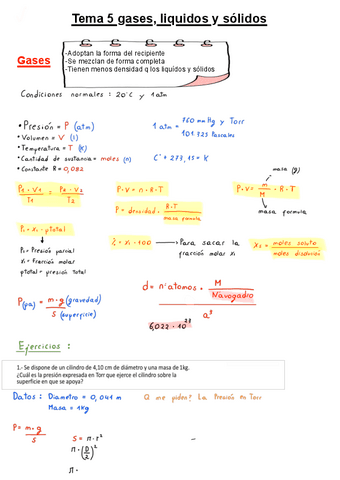 Tema 5 gases, liquidos y sólidos
Gases
-Adoptan la forma del recipiente
-Se mezclan de forma completa
-Tienen menos densidad q los liquidos y sólidos
Condiciones normales : 20°C y 1 atm
• Presión = P (atm)
• Volumen = V (l)
• Temperatura = T (K)
• Cantidad de sustancia = moles (n)
• Constante R = 0,082
1 atm = 760 mm Hg y Torr
101.325 Pascales
C° + 273,15 = K
P1 · V1 / T1 = P2 · V2 / T2
P · V = n · R · T
masa (g)
P · V = m / M · R · T
masa formula
P = densidad · R·T / masa formula
Pi = xi · ptotal
Pi = Presión parcial
xi = Fracción molar
ptotal = presión total
% = xi · 100 → Para sacar la fracción molar xi
xs = moles soluto / moles disolución
P(pa) = m · g (gravedad) / S (superficie)
d = nº atomos · M / Navogadro / a³
6,022 · 10²³
Ejercicios :
1.- Se dispone de un cilindro de 4,10 cm de diámetro y una masa de 1kg.
¿Cuál es la presión expresada en Torr que ejerce el cilindro sobre la
superficie en que se apoya?
Datos : Diametro = 0,041 m
Masa = 1kg
Q me piden? La Presión en Torr
P = m · g / S
S = π · r²
π · (D/2)²
π ·